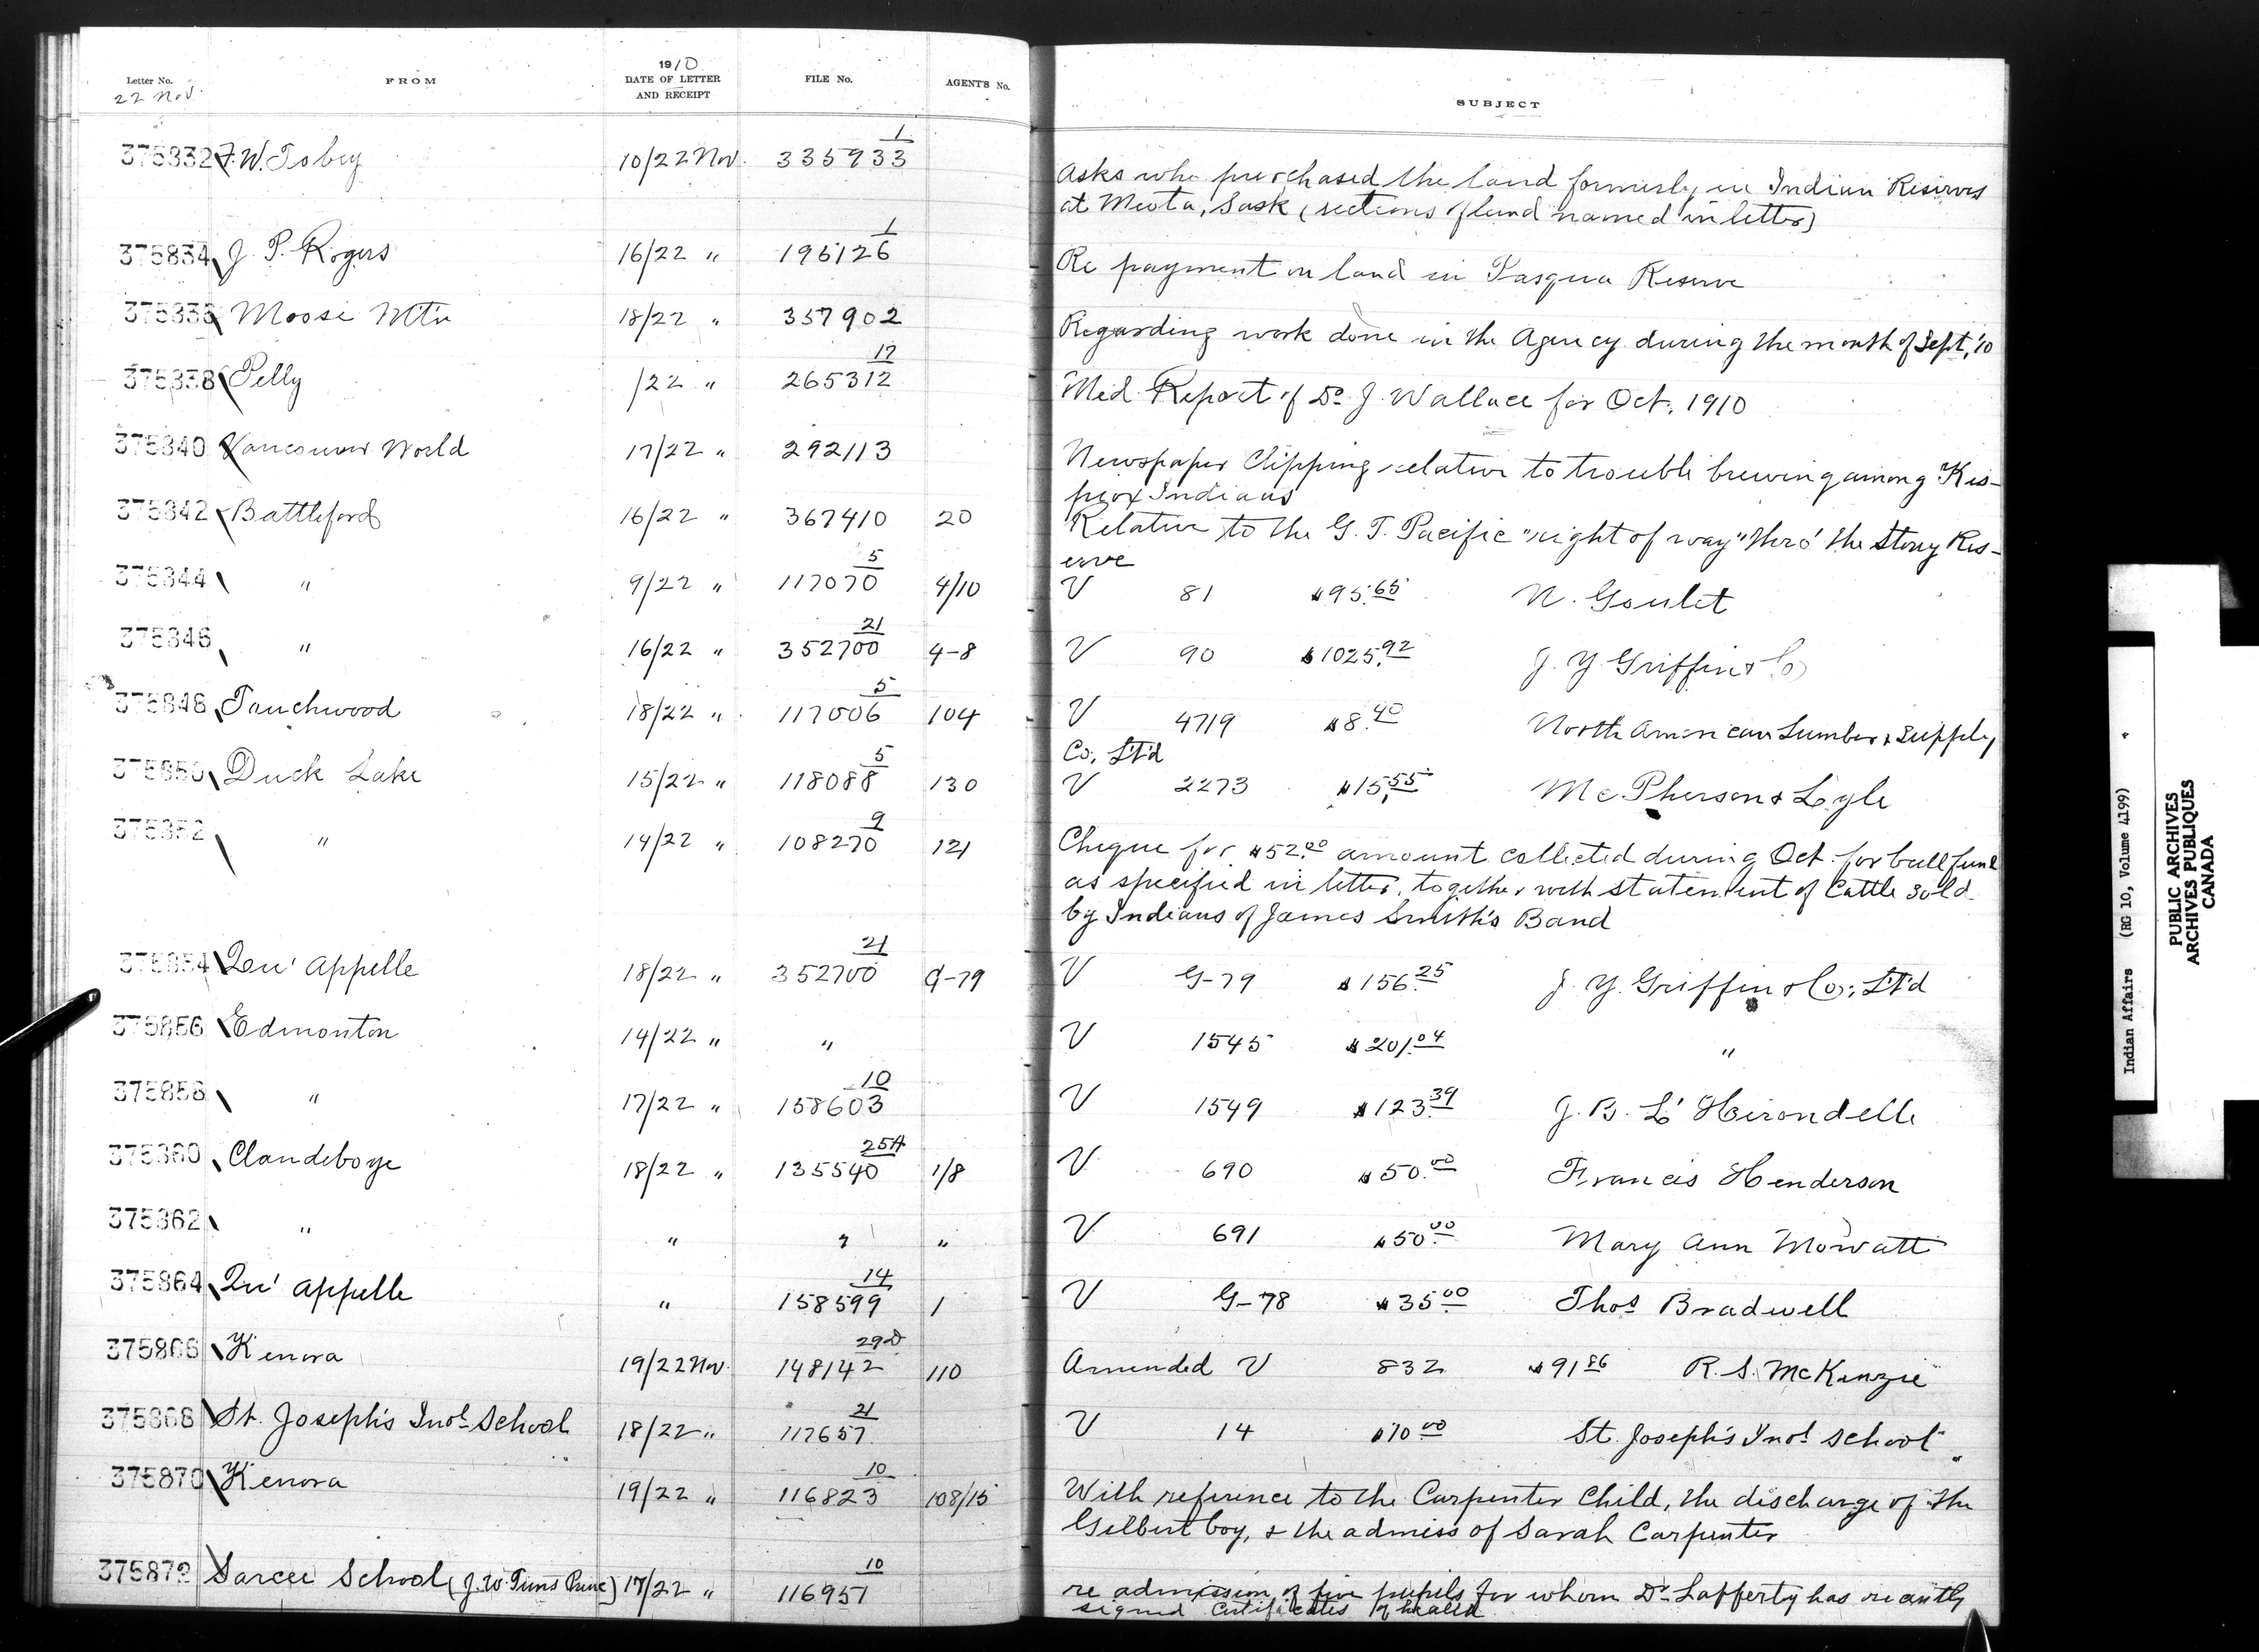 Letter No. FROM 1910 DATE OF LETTER AND RECEIPT FILE No. AGENT'S No. SUBJECT
22 Nov.
375832 F.W. Tobey 10/22 Nov. 335933 1 Asks who purchased the land formerly in Indian Reserves
at Meota, Sask (sections of land named in letter)
375834 J. P. Rogers 16/22 " 195126 1 Re payment on land in Pasqua Reserve
Moose Mtn 18/22 " 357902 Regarding work done in the Agency during the month of Sept, '10
375838 Pelly /22 " 265312 17 Med. Report of Dr J. Wallace for Oct. 1910
375840 Vancouver World 17/22 " 292113 Newspaper Clipping relative to trouble brewing among Kis-
piox Indians
375842 Battleford 16/22 " 367410 20 Relative to the G. T. Pacific "right of way" thro' the Stony Res-
erve
375844 " 9/22 " 117070 5 4/10 V 81 $95.65 N. Goulet
375846 " 16/22 " 352700 21 4-8 V 90 $1025.92 J. Y. Griffin & Co
375848 Touchwood 18/22 " 117006 5 104 V 4719 $8.40 North American Lumber & Supply
Co, Lt'd
375850 Duck Lake 15/22 " 118088 5 130 V 2273 $15.55 McPherson & Lyle
375852 " 14/22 " 108270 9 121 Cheque for $52.00 amount collected during Oct. for bull fund
as specified in letter, together with statement of Cattle sold
by Indians of James Smith's Band
375854 Qu' Appelle 18/22 " 352700 21 G-79 V G-79 $156.25 J. Y. Griffin & Co; Lt'd
375856 Edmonton 14/22 " " V 1545 $201.04 "
375858 " 17/22 " 158603 10 V 1549 $123.39 J. B. L' Hirondelle
375860 Clandeboye 18/22 " 135540 25A 1/8 V 690 $50.00 Francis Henderson
375862 " " " " V 691 $50.00 Mary Ann Mowatt
375864 Qu' Appelle " 158599 14 1 V G-78 $35.00 Thos Bradwell
375866 Kenora 19/22 Nov. 148142 29D 110 Amended V 832 $91.86 R. S. McKenzie
375868 St. Joseph's Indl School 18/22 " 117657 21 V 14 $10.00 St. Joseph's Indl School
375870 Kenora 19/22 " 116823 10 108/15 With reference to the Carpenter Child, the discharge of the
Gilbert boy, & the admiss of Sarah Carpenter
375872 Sarcee School (J.W. Tims Princ) 17/22 " 116957 10 re admission of five pupils for whom Dr Lafferty has recently
signed certificates of health
Indian Affairs (RG 10, Volume 4199)
PUBLIC ARCHIVES
ARCHIVES PUBLIQUES
CANADA